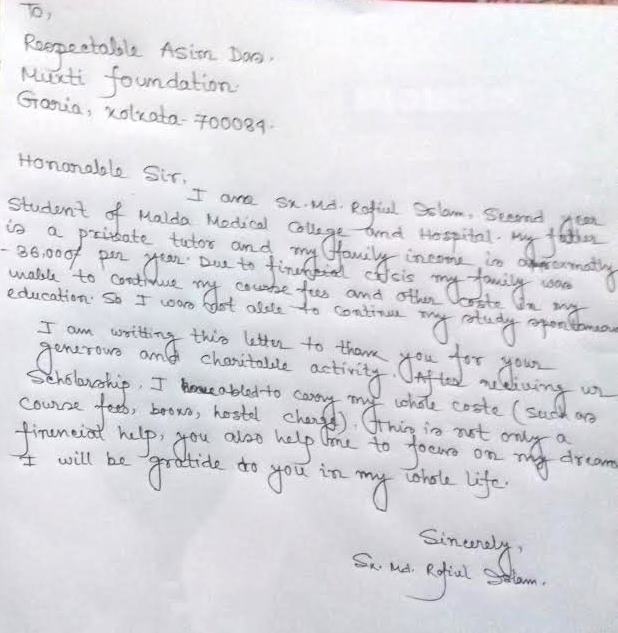 To,
Respectable Asim Das.
Mukti foundation.
Garia, Kolkata- 700084.
Honorable Sir,
I am Sk. Md. Rafiul Islam, Second year
Student of Malda Medical College and Hospital. My father
is a private tutor and my family income is approximatly
- 36,000/ per year. Due to finencial crisis my family was
unable to continue my course fees and other coste in my
education. So I was not able to continue my study spontaneous
I am writting this letter to thank you for your
generous and charitable activity. After receiving ur
Scholarship, I have abled to carry my whole coste (such as
course fees, books, hostel charge). This is not only a
finencial help, you also help me to focus on my dream
I will be gratide to you in my whole life.
Sincerely,
Sk. Md. Rafiul Islam.